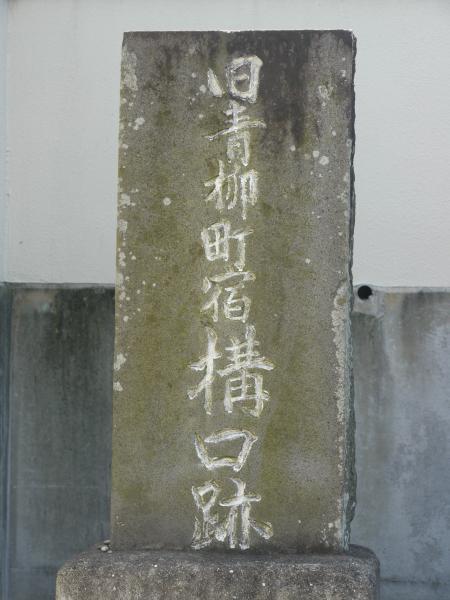 旧青柳町宿構口跡